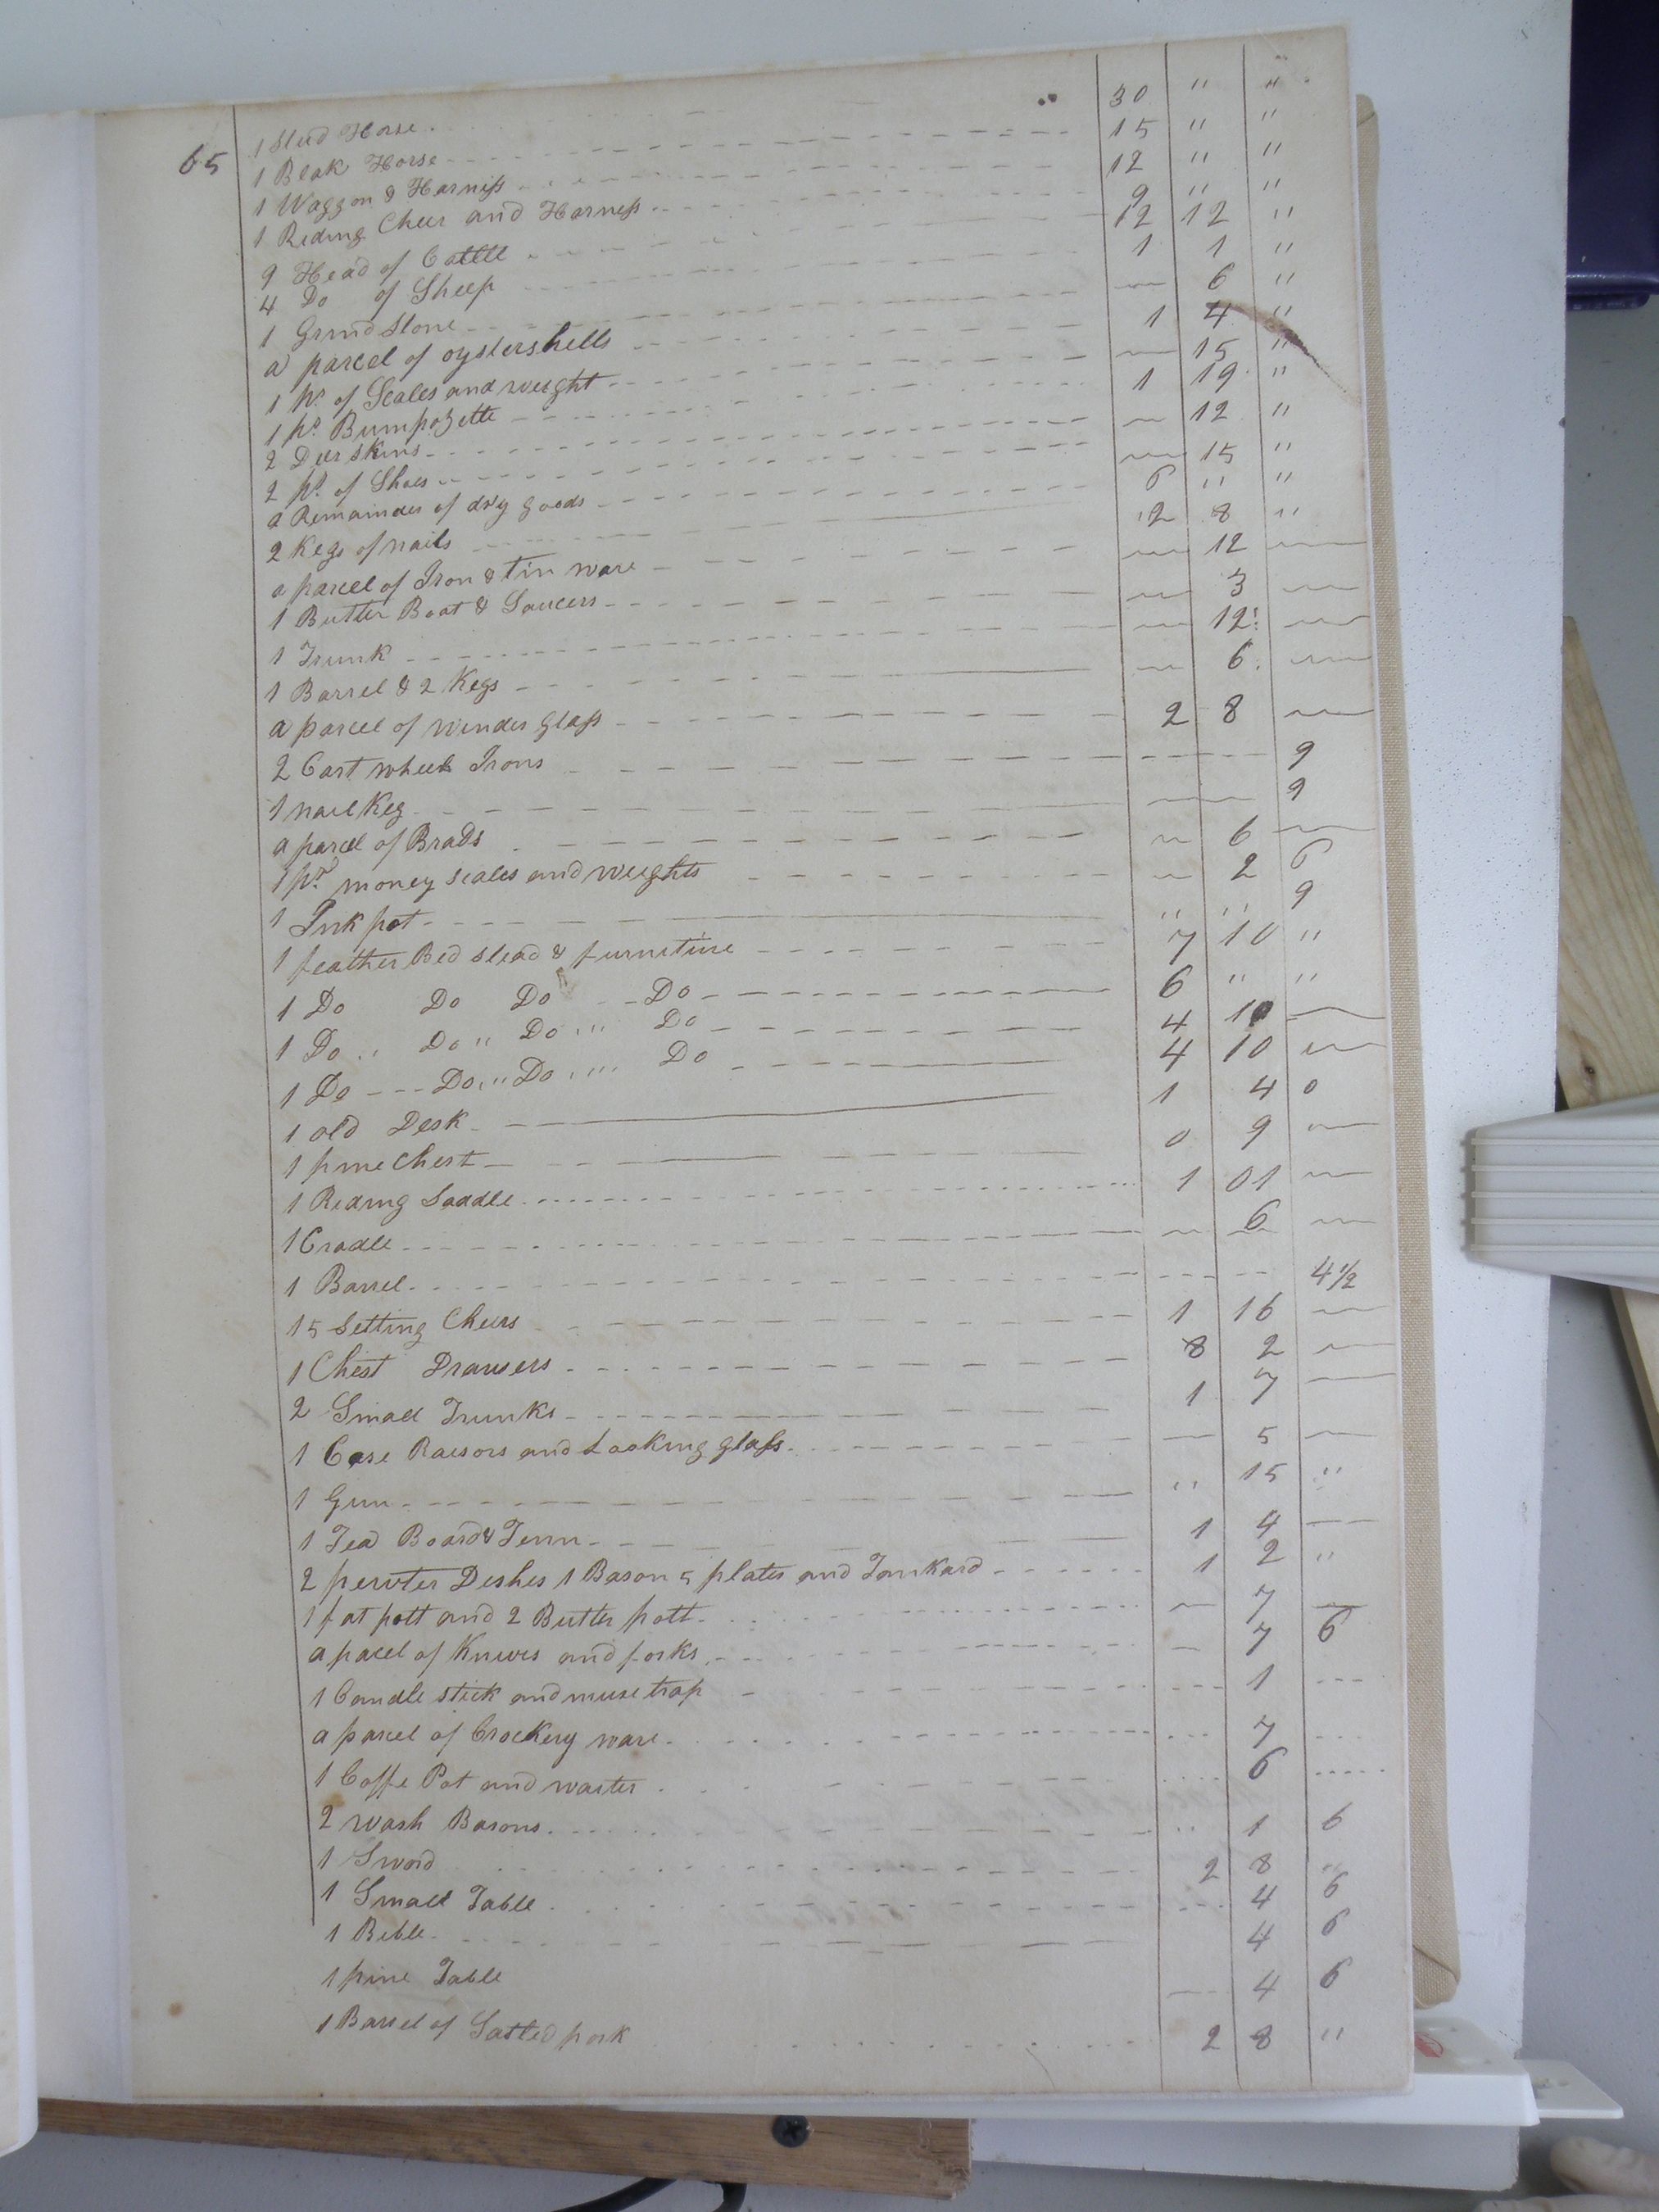 65
1 Stud Horse 30 " "
1 Beak Horse 15 " "
1 Waggon & Harniss 12 " "
1 Rideing Cheer and Harness 9 " "
9 Head of Cattle 12 12 "
4 Do of Sheep 1 1 "
1 Grind Stone 6 "
a parcel of oystershells 1 4 "
1 pr. of Scales and weight 15 "
1 ps. Bumpozette 1 19 "
2 Deer skins 12 "
2 pr. of Shoes 15 "
a Remainder of dry goods 6 " "
2 Kegs of nails 2 8 "
a parcel of Iron & tin ware 12
1 Butter Boat & Saucers 3
1 Trunk 12
1 Barrel & 2 Kegs 6
a parcel of winder glass 2 8
2 Cart wheel Irons 9
1 nail Keg 9
a parcel of Brads 6
1 pr. money scales and weights 2 6
1 Ink pot " " 9
1 feather Bed stead & furniture 7 10 "
1 Do Do Do Do 6 " "
1 Do " Do " Do " Do 4 10
1 Do Do " Do " Do 4 10
1 old Desk 1 4 0
1 pine Chest 0 9
1 Riding Saddle 1 01
1 Cradle 6
1 Barrel 4 1/2
15 Setting Cheers 1 16
1 Chest Drawers 8 2
2 Small Trunks 1 7
1 Case Raesors and Looking glass 5
1 Gun " 15 "
1 Tea Board & Tenn 1 4
2 pewter Deshes 1 Bason 5 plates and Tankard 1 2 "
1 fat pott and 2 Butter pott 7
a pacel of Knives and forks 7 6
1 Candle stick and muse trap 1
a parcel of Crockery ware 7
1 Coffe Pot and waiter 6
2 wash Basons " 1 6
1 Sword 2 8 "
1 Small Table 4 6
1 Bible 4 6
1 pine Table 4 6
1 Barrel of Salted pork 2 8 "